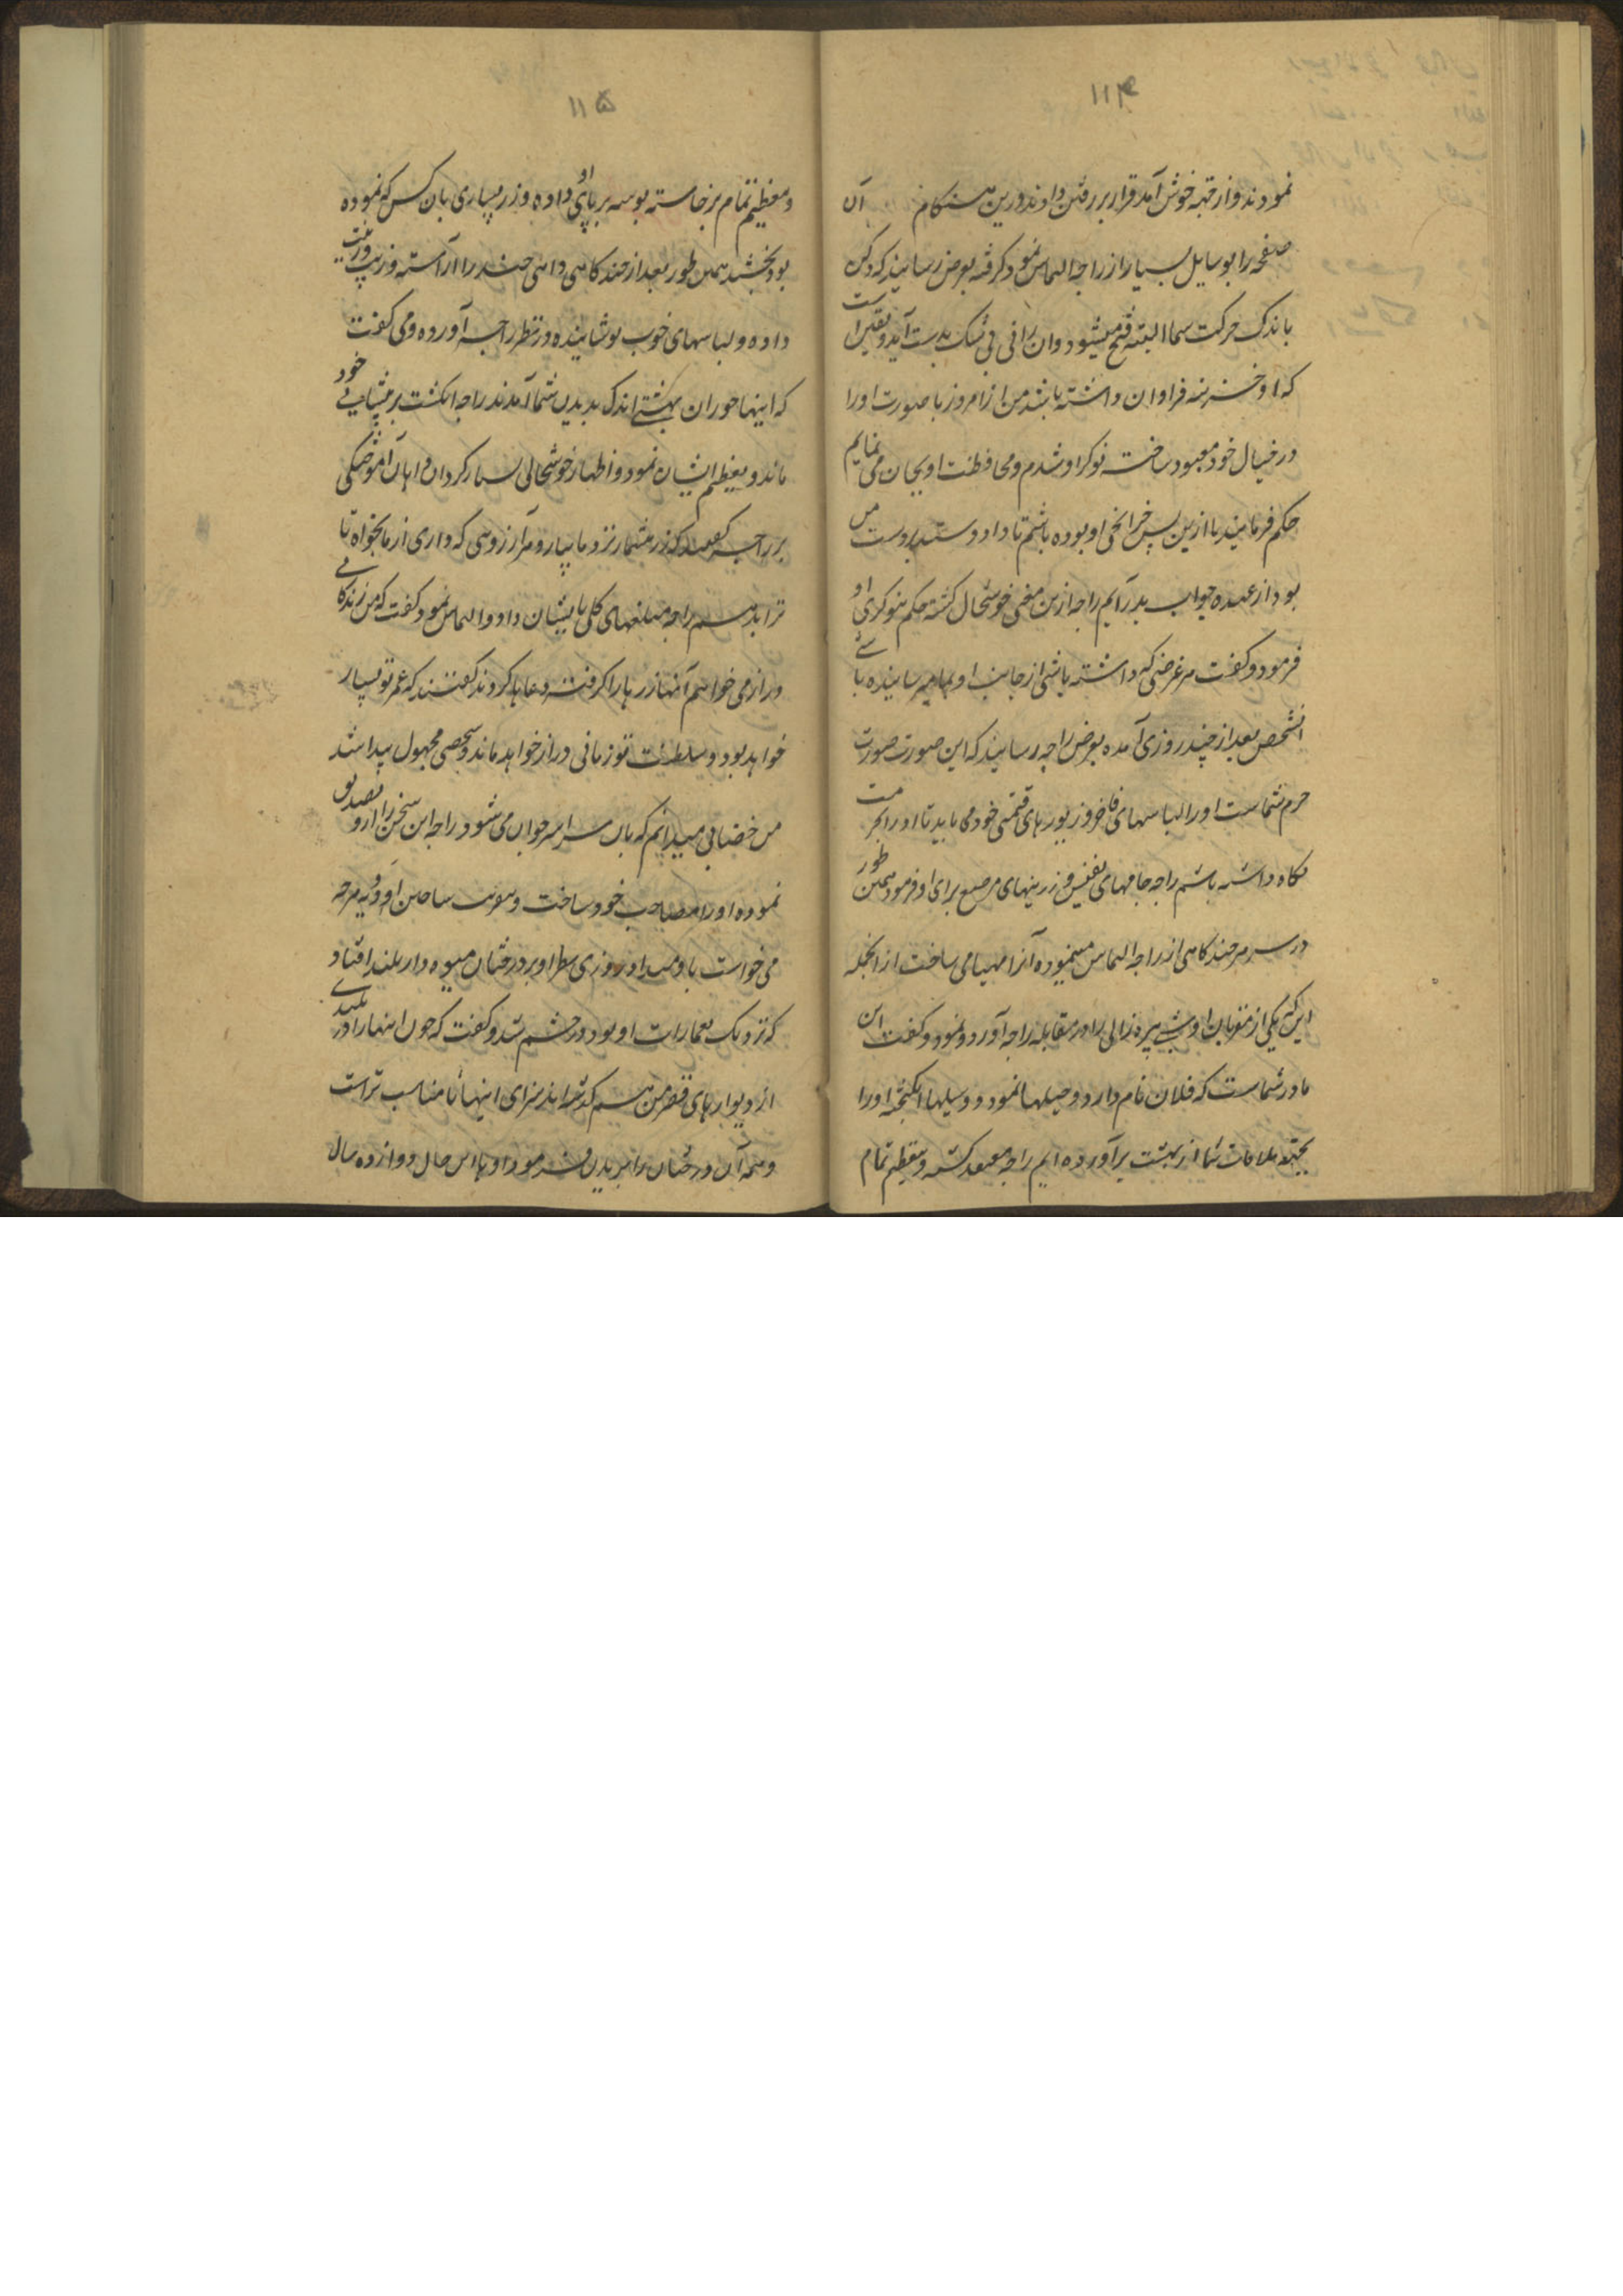 ۱۱۴
نمودند و از قبه خوش آمد قرار بر رفتن دادند درین هنکام آن
صفحه را بوسایل بسیار از راجه التماس نمود کرفته بعرض رسانید که دکن
باندک حرکت سما البته فتح میشود وان رانی بی شک بدست آید و یقین است
که او خزینه فراوان داشته باشد من از امروز با صورت او را
در خیال خود معبود ساخته نوکر او شدم و محافظت او بجان می نمایم
حکم فرمائید تا ازین پس خزانچی او بوده باشم تا داد و ستد بر دست من
بود از عهده جواب بدر آیم راجه ازین معنی خوشحال کشته حکم بنوکری او
فرمود و کفت هر غرضی که داشته باشی از جانب او بما میرسانیده باشی
انشخص بعد از چند روزی آمده بعرض راجه رسانید که این صورت صورت
حرم شماست او را لباسهای فاخر و زیورهای قیمتی خود می باید تا او را بحرمت
نکاه داشته باشم راجه جامهای نفیس و زرینهای مرصع برای او فرمود همین طور
در سر هر چند کاهی از راجه التماس مینموده آنرا مهیا می ساخت از انجمله
این که یکی از مقربان او شبی پیره زالی را در مقابله راجه آورد و نمود و کفت این
مادر شماست که فلان نام دارد و حیلها نمود و وسیلها انکیخته او را
بجهة ملاقات شما از بهشت برآورده ایم راجه معتقد کشته و بتعظیم تمام
۱۱۵
و تعظیم تمام برخاسته بوسه بر پای او داده و زر بسیاری بان کس که نموده
بود بخشید همین طور بعد از چند کاهی داهی چند را آراسته و زیب و زینت
داده و لباسهای خوب پوشانیده در نظر راجه آورده و می کفت
که اینها حوران بهشتی اند که بدیدن شما آمدند راجه انکشت بر پیشانی خود
ماند و تعظیم ایشان نمود و اظهار خوشحالی بسیار کرد
بر راجه کفتند که زر بیشمار نزد ما بیار و هر آرزوئی که داری از ما بخواه تا
ترا بدهیم راجه مبلغهای کلی بایشان داد و التماس نمود کفت که من زندکانی
دراز می خواهم آنها زرها را کرفته دعاها کردند کفتند که عمر تو بسیار
خواهد بود و سلطنت تو زمانی دراز خواهد ماند و شخصی مجهول پیدا شد
من خضابی میدانم که بان سر اسر جوان می شود راجه این سخن را ازو تصدیق
نموده او را مصاحب خود ساخت و هر چه
می خواست باو میداد روزی نظر او بر درختان میوه دار بلند افتاد
که نزدیک بعمارات او بود در خشم شد و کفت که چون اینها را در بلندی
از دیوارهای قصر من هم کذشته اند سزای اینها تا مناسب تراست
و همه آن درختان را بریدن فرمود و تا این حال دوازده سال